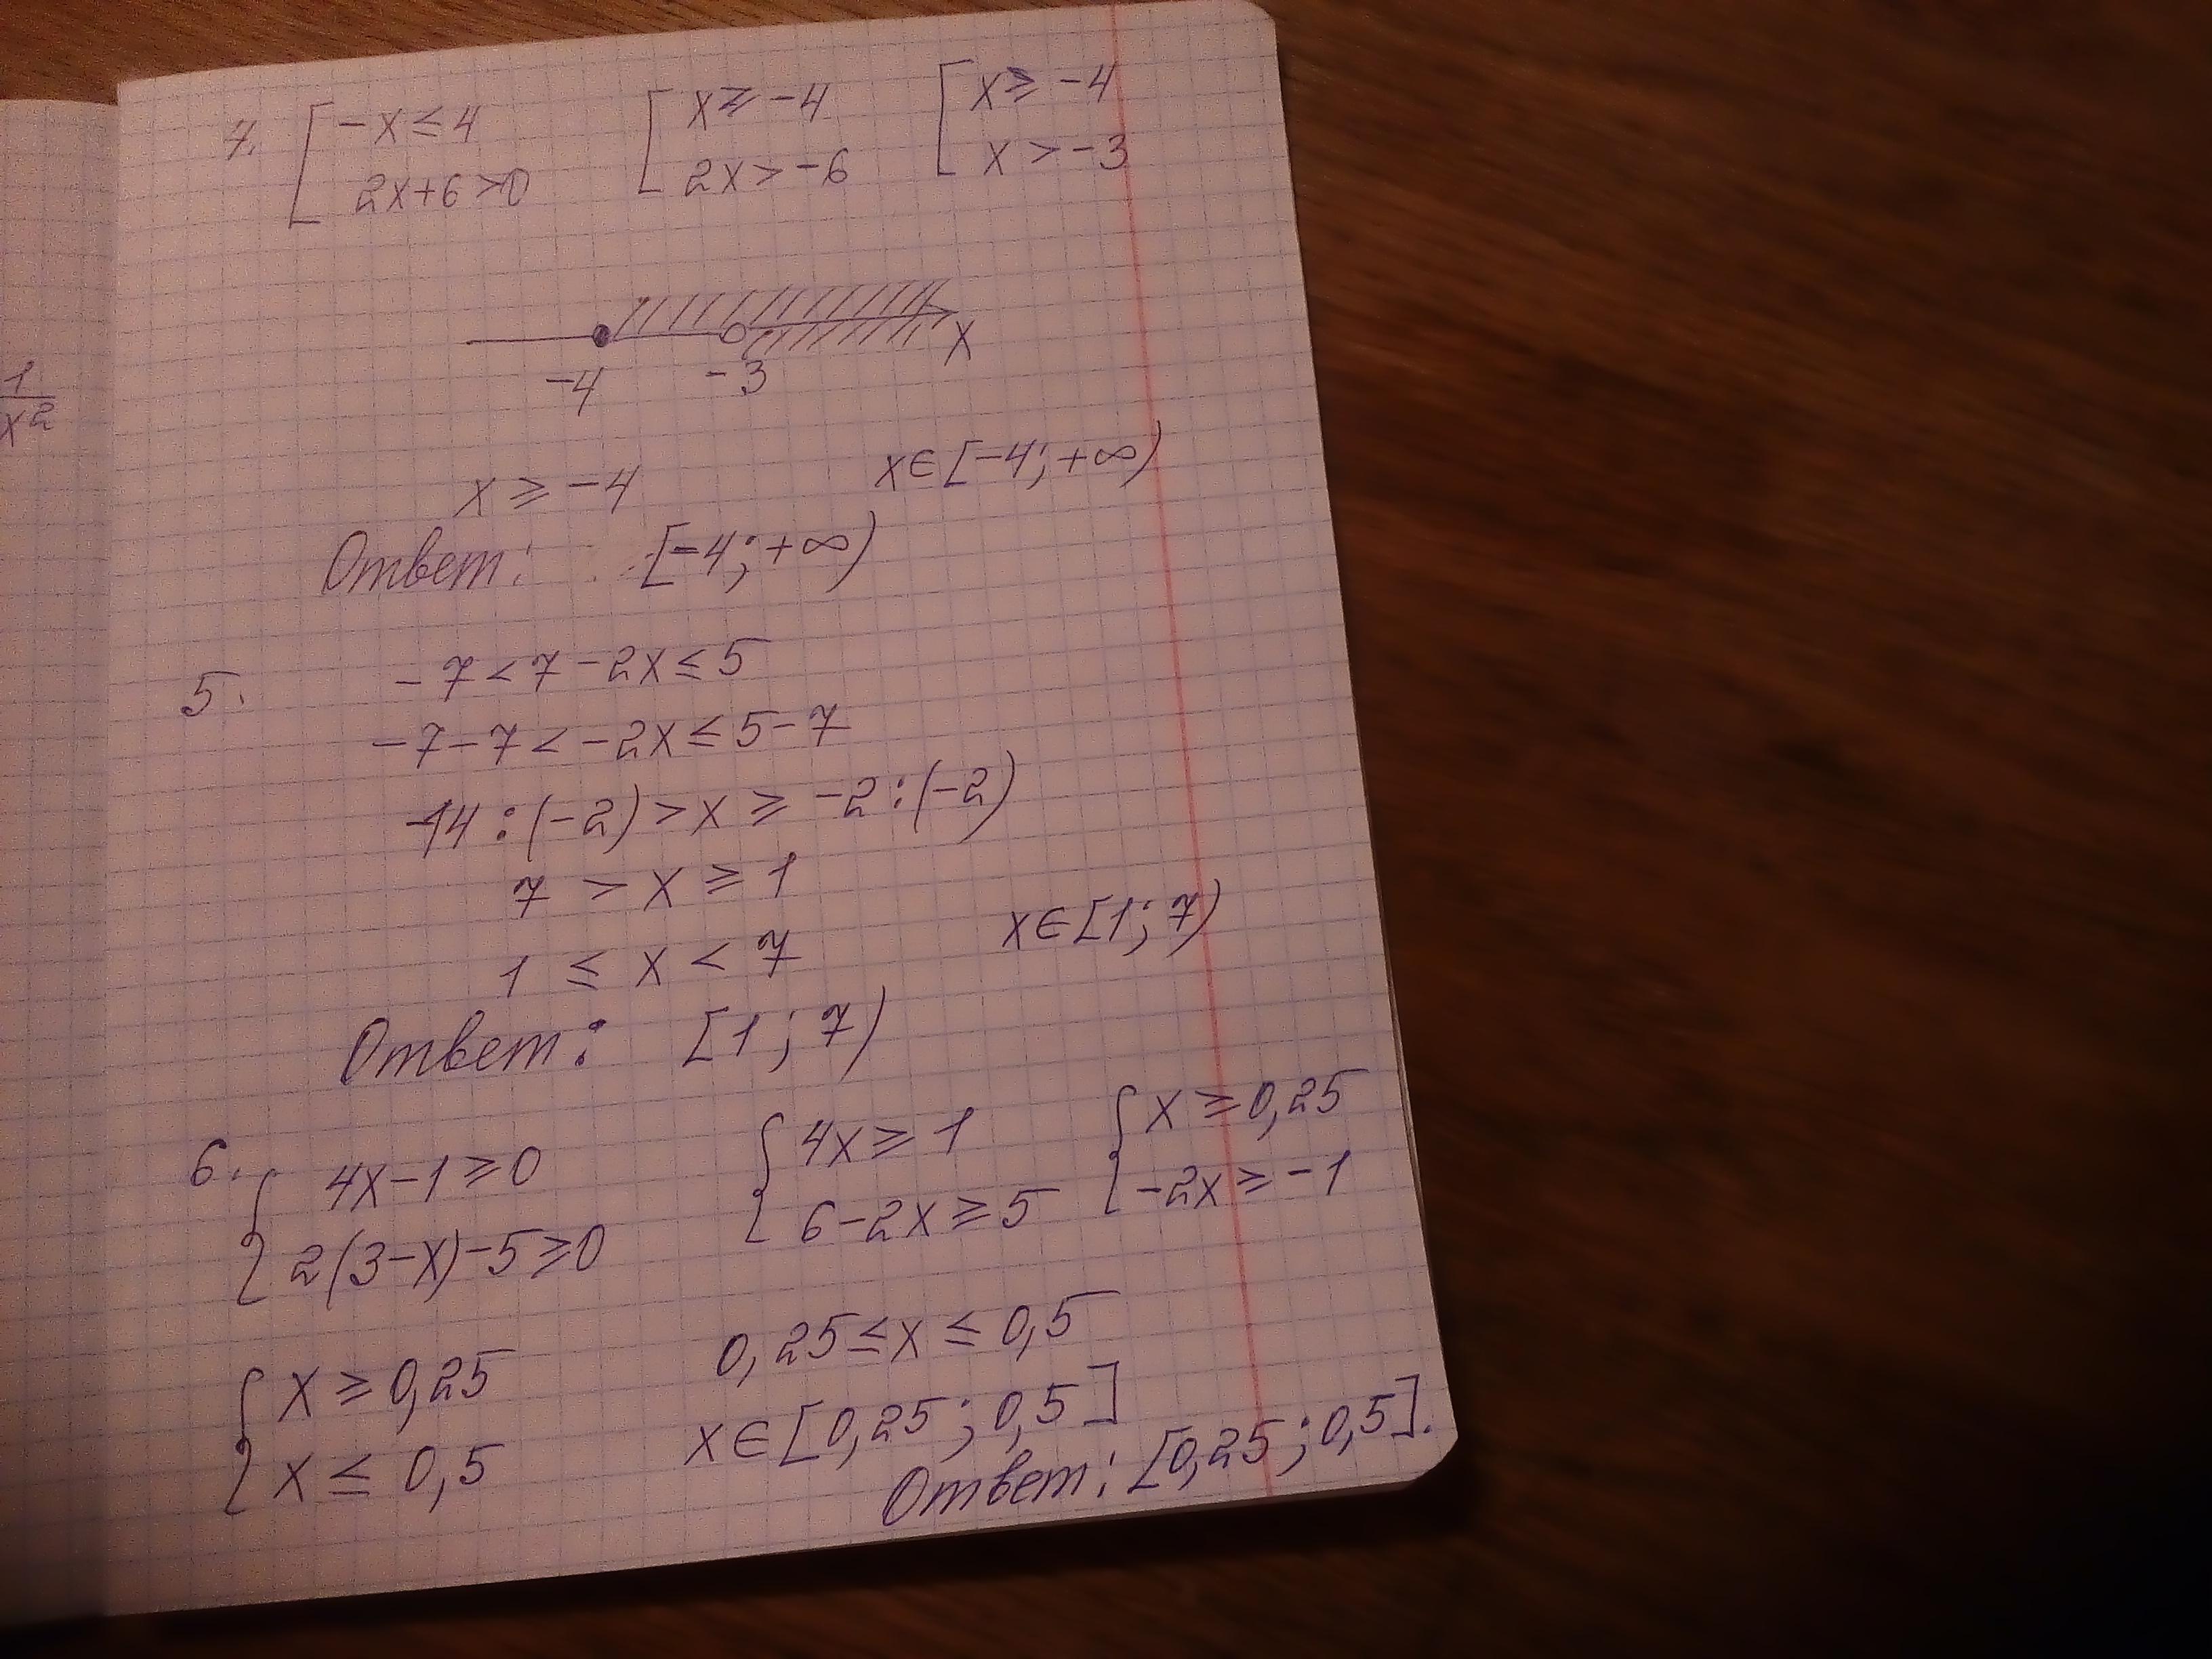 1
x²
7. [ -x ≤ 4 [ x ≥ -4 [ x ≥ -4
2x+6 >0 2x > -6 x > -3
-4 -3 x
x ≥ -4 x∈[-4; +∞)
Ответ: [-4; +∞)
5. -7 < 7 - 2x ≤ 5
-7-7 < -2x ≤ 5-7
-14 : (-2) > x ≥ -2 : (-2)
7 > x ≥ 1
1 ≤ x < 7 x∈[1; 7)
Ответ: [1; 7)
6. { 4x-1 ≥ 0 { 4x ≥ 1 { x ≥ 0,25
2(3-x)-5 ≥ 0 6-2x ≥ 5 -2x ≥ -1
{ x ≥ 0,25 0,25 ≤ x ≤ 0,5
x ≤ 0,5 x∈[0,25; 0,5]
Ответ: [0,25; 0,5].